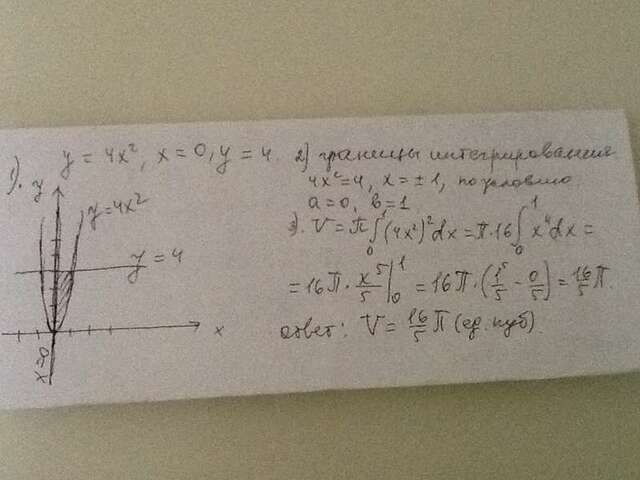 1). y = 4x², x = 0, y = 4.
y
y = 4x²
y = 4
x
x=0
2) границы интегрирования
4x²=4, x = ±1, по условию
a = 0, b = 1
3). V = π∫₀¹(4x²)²dx = π·16∫₀¹ x⁴dx =
= 16π · x⁵/5 |₀¹ = 16π · (1⁵/5 - 0/5) = 16/5 π.
ответ: V = 16/5 π (ед. куб).